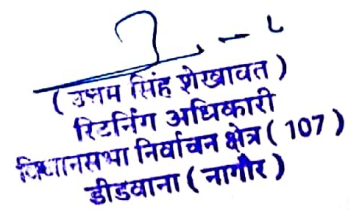 ( उत्तम सिंह शेखावत )
रिटर्निंग अधिकारी
विधानसभा निर्वाचन क्षेत्र ( 107 )
डीडवाना ( नागौर )